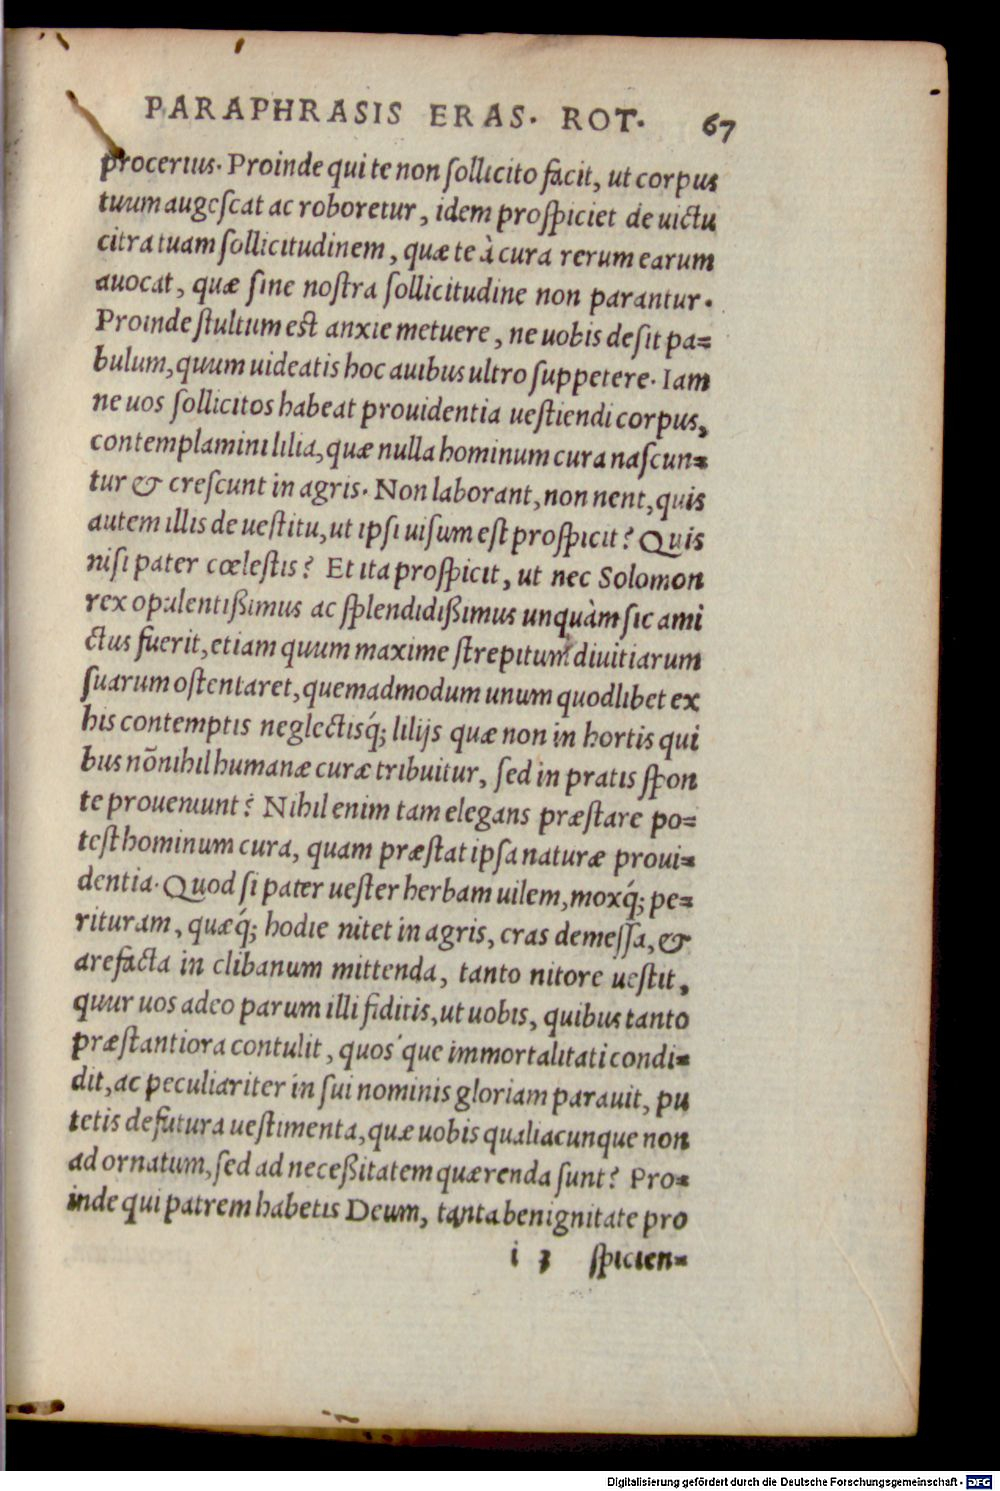 PARAPHRASIS ERAS. ROT. 67
procerius. Proinde qui te non sollicito facit, ut corpus
tuum augescat ac roboretur, idem prospiciet de uictu
citra tuam sollicitudinem, quæ te à cura rerum earum
auocat, quæ sine nostra sollicitudine non parantur.
Proinde stultum est anxie metuere, ne uobis desit pa=
bulum, quum uideatis hoc auibus ultro suppetere. Iam
ne uos sollicitos habeat prouidentia uestiendi corpus,
contemplamini lilia, quæ nulla hominum cura nascun=
tur & crescunt in agris. Non laborant, non nent, quis
autem illis de uestitu, ut ipsi uisum est prospicit? Quis
nisi pater cœlestis? Et ita prospicit, ut nec Solomon
rex opulentißimus ac splendidißimus unquàm sic ami
ctus fuerit, etiam quum maxime strepitum diuitiarum
suarum ostentaret, quemadmodum unum quodlibet ex
his contemptis neglectisq́; lilijs quæ non in hortis qui
bus nõnihil humanæ curæ tribuitur, sed in pratis spon
te proueniunt? Nihil enim tam elegans præstare po=
test hominum cura, quam præstat ipsa naturæ proui=
dentia. Quod si pater uester herbam uilem, moxq́; pe=
rituram, quæq́; hodie nitet in agris, cras demessa, &
arefacta in clibanum mittenda, tanto nitore uestit,
quur uos adeo parum illi fiditis, ut uobis, quibus tanto
præstantiora contulit, quos'que immortalitati condi=
dit, ac peculiariter in sui nominis gloriam parauit, pu
tetis defutura uestimenta, quæ uobis qualiacunque non
ad ornatum, sed ad neceßitatem quærenda sunt? Pro=
inde qui patrem habetis Deum, tanta benignitate pro
i 3 spicien=
Digitalisierung gefördert durch die Deutsche Forschungsgemeinschaft - DFG